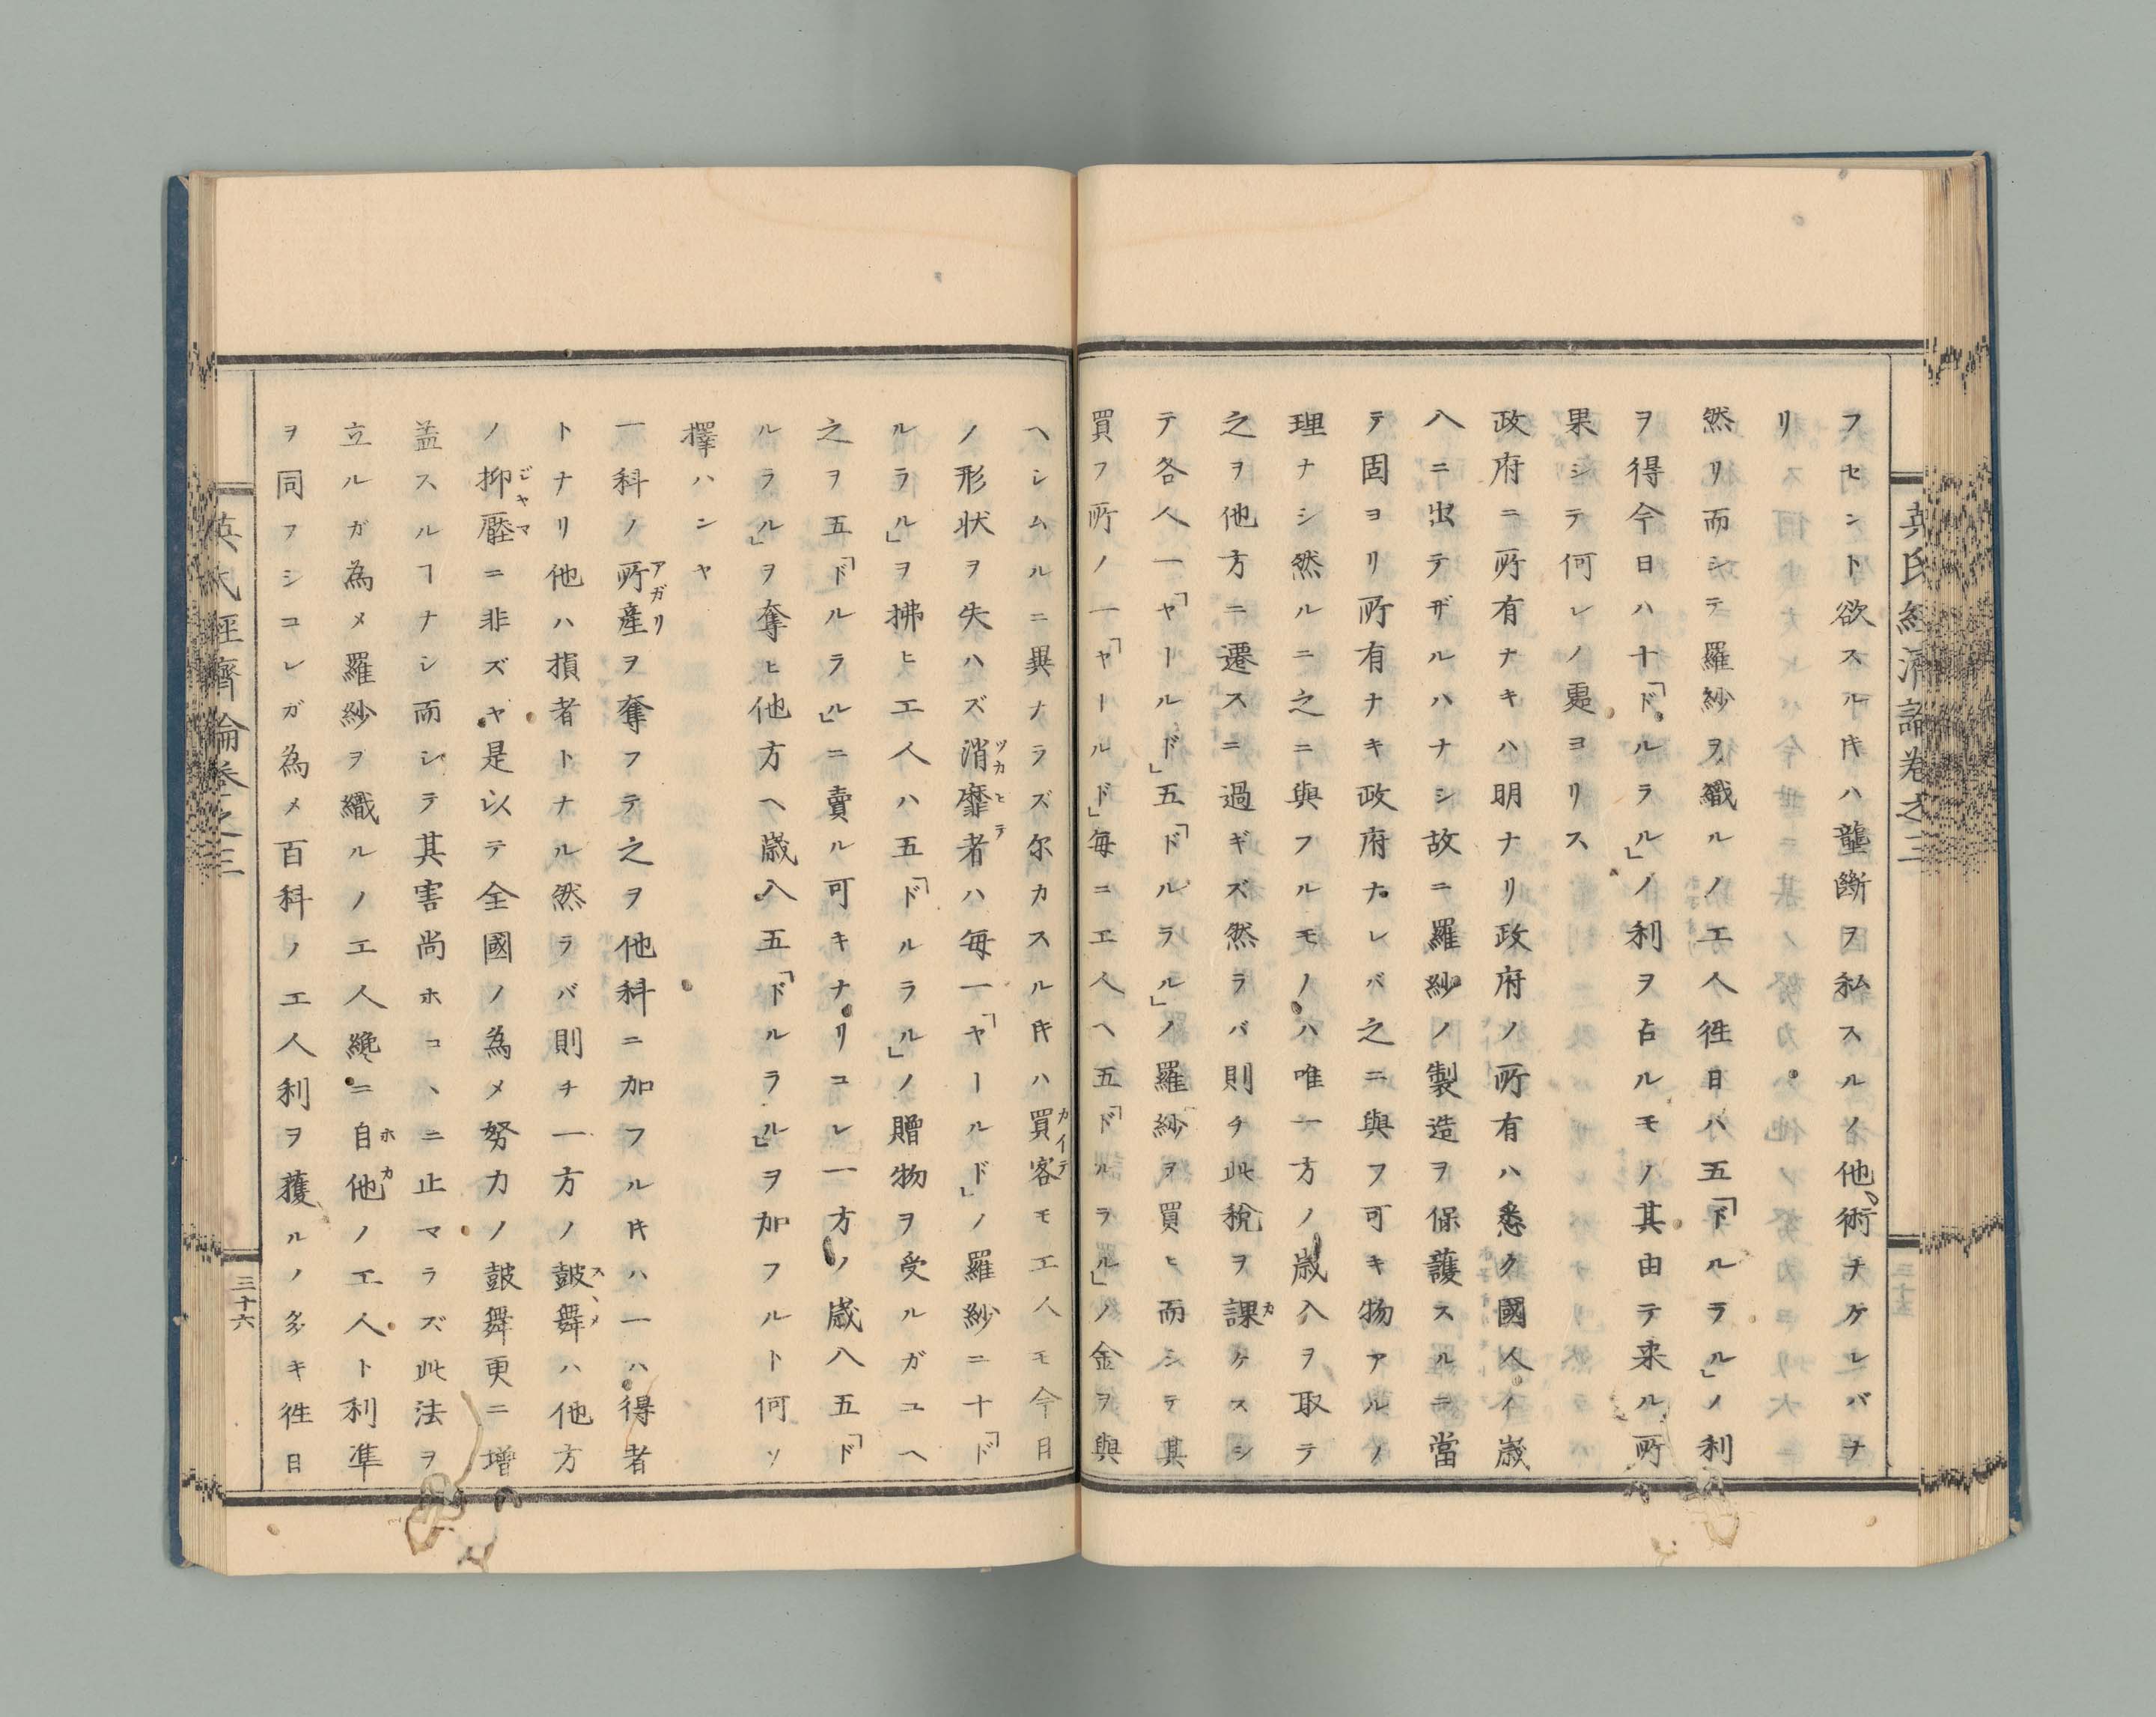 英氏經濟論卷之三
フセント欲スルキハ壟斷ヲ私スルノ他、術チケレバナ
リ
然リ而シテ羅紗ヲ織ルノ工人徃日ハ五「ドルラル」ノ利
ヲ得今日ハ十「ドルラル」ノ利ヲ占ルモノ其由テ来ル所
果シテ何レノ夷ヨリス
政府ニ所有ナキハ明ナリ政府ノ所有ハ悉ク國人ノ歳
入ニ出テザルハナシ故ニ羅紗ノ製造ヲ保護スルニ當
テ固ヨリ所有ナキ政府ナレバ之ニ與フ可キ物アルノ
理ナシ然ルニ之ニ與フルモノハ唯一方ノ歳入ヲ取テ
之ヲ他方ニ遷スニ過ギズ然ラバ則チ此稅ヲ課カケスシ
テ各人一「ヤールド」五「ドルラル」ノ羅紗ヲ買ヒ而シテ其
買フ所ノ一「ヤールド」每ニ工人ヘ五「ドルラル」ノ金ヲ與
ヘシムルニ異ナラズ尔カスルキハ買客カイテモ工人モ今日
ノ形状ヲ失ハズ消靡者ツカヒテハ每一「ヤールド」ノ羅紗ニ十「ド
ルラル」ヲ拂ヒ工人ハ五「ドルラル」ノ贈物ヲ受ルガユヘ
之ヲ五「ドルラル」ニ賣ル可キナリコレ一方ノ歳入五「ド
ルラル」ヲ奪ヒ他方ヘ歳入五「ドルラル」ヲ加フルト何ソ
擇ハンヤ
一科ノ所產アガリヲ奪フテ之ヲ他科ニ加フルキハ一ハ得者
トナリ他ハ損者トナル然ラバ則チ一方ノ鼓舞スヽメハ他方
ノ抑壓ジャマニ非ズヤ是以テ全國ノ為メ努力ノ鼓舞更ニ增
益スルヿナシ而シテ其害尚ホコヽニ止マラズ此法ヲ
立ルガ為メ羅紗ヲ織ルノ工人纔ニ自他ホカノ工人ト利準
ヲ同フシコレガ為メ百科ノ工人利ヲ獲ルノ多キ徃日
英氏經濟論卷之三
三十六